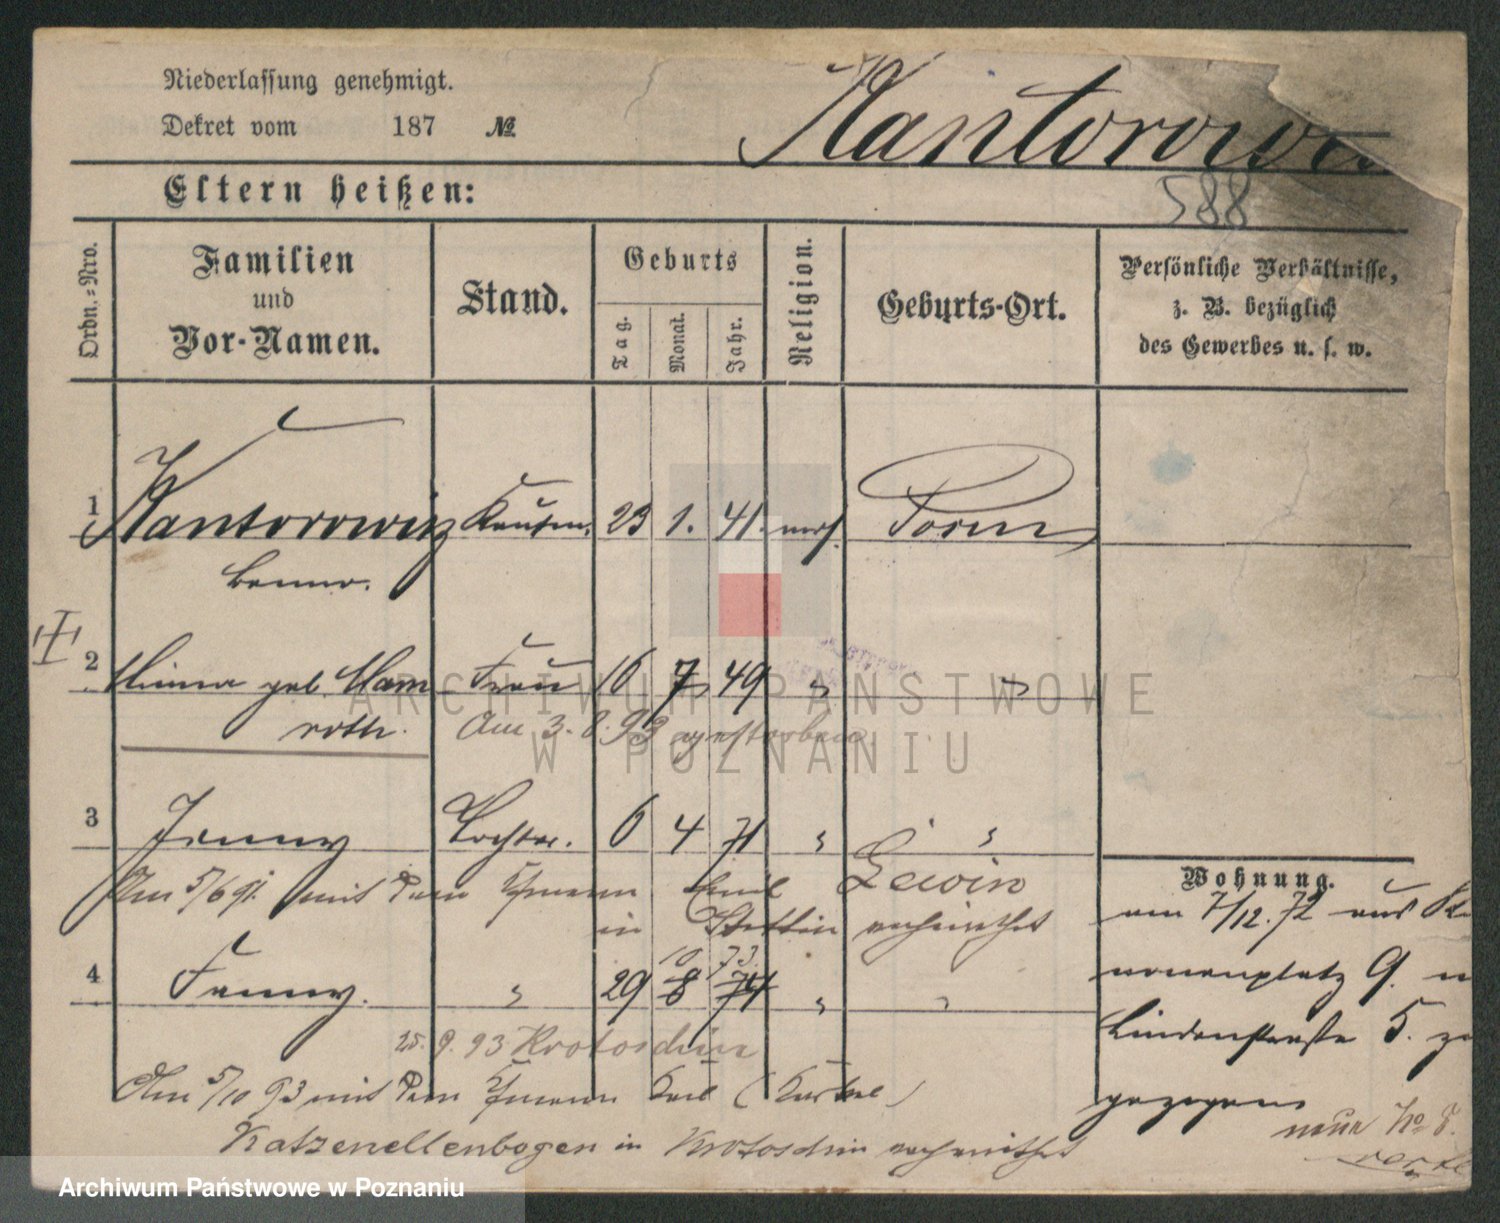 Niederlassung genehmigt.
Dekret vom 187 №
Kantorowi
588
Eltern heißen:
Ordn.-Nro.
Familien und Vor-Namen.
Stand.
Geburts
Tag. Monat. Jahr.
Religion.
Geburts-Ort.
Persönliche Verhältnisse, z. B. bezüglich des Gewerbes u. s. w.
1 Kantorowicz Kaufm. 23 1. 41. mos. Posen
Benno.
2 Minna geb. Ham Frau 16 7 49 " "
roth. Am 3. 8. 93 gestorben
3 Jenny Tochter. 6 4 71 " "
Am 5/6 91. mit dem Kfmann Emil Lewin
in Stettin verheirathet
10 73.
4 Fanny. " 29 8 74 " "
25. 9. 93 Krotoschin
Am 5/10 93 mit dem Kfmann Karl
Katzenellenbogen in Krotoschin verheirathet
Wohnung.
am 7/12. 72 aus
nonenplatz 9. n
Lindenstraße 5. zu
gezogen
neue No 8.
ARCHIWUM PAŃSTWOWE
W POZNANIU
Archiwum Państwowe w Poznaniu